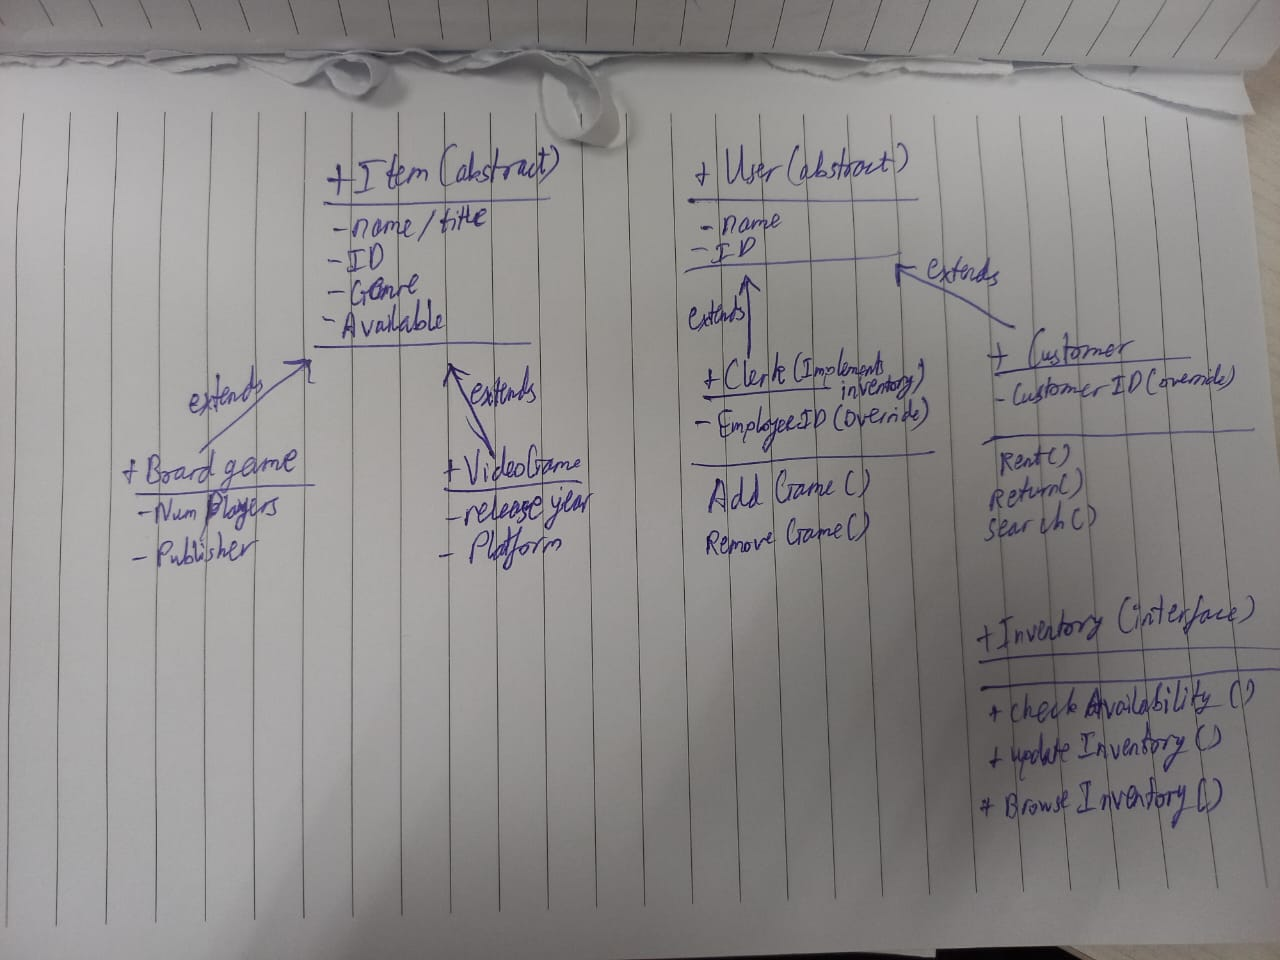 + Item (abstract)
- name / title
- ID
- Genre
- Available
extends
extends
+ Board game
- Num Players
- Publisher
+ VideoGame
- release year
- Platform
+ User (abstract)
- name
- ID
extends
extends
+ Clerk (Implements
inventory)
- EmployeeID (Override)
Add Game ()
Remove Game ()
+ Customer
- Customer ID (override)
Rent()
Return()
Search()
+ Inventory (interface)
+ check Availability ()
+ update Inventory ()
+ Browse Inventory ()